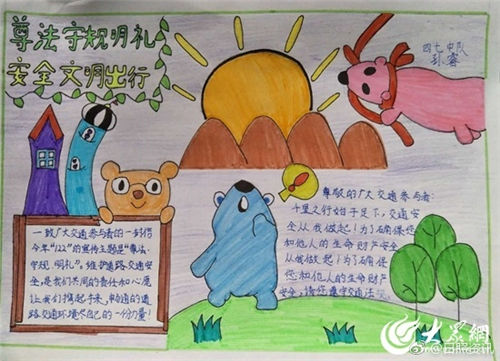 尊法守规明礼
安全文明出行
四七中队
孙睿
一致广大交通参与者的一封信
今年"122"的宣传主题是"尊法·
守规 明礼"。维护道路交通安
全是我们共同的责任和心愿
让我们携起手来,畅通的道
路交通环境尽自己的一份力量!
尊敬的广大交通参与者
千里之行始于足下,交通安
全从我做起!为了确保您
和他人的生命财产安全
从我做起!为了确保
您和他人的生命财产
安全,请您遵守交通法
大众網